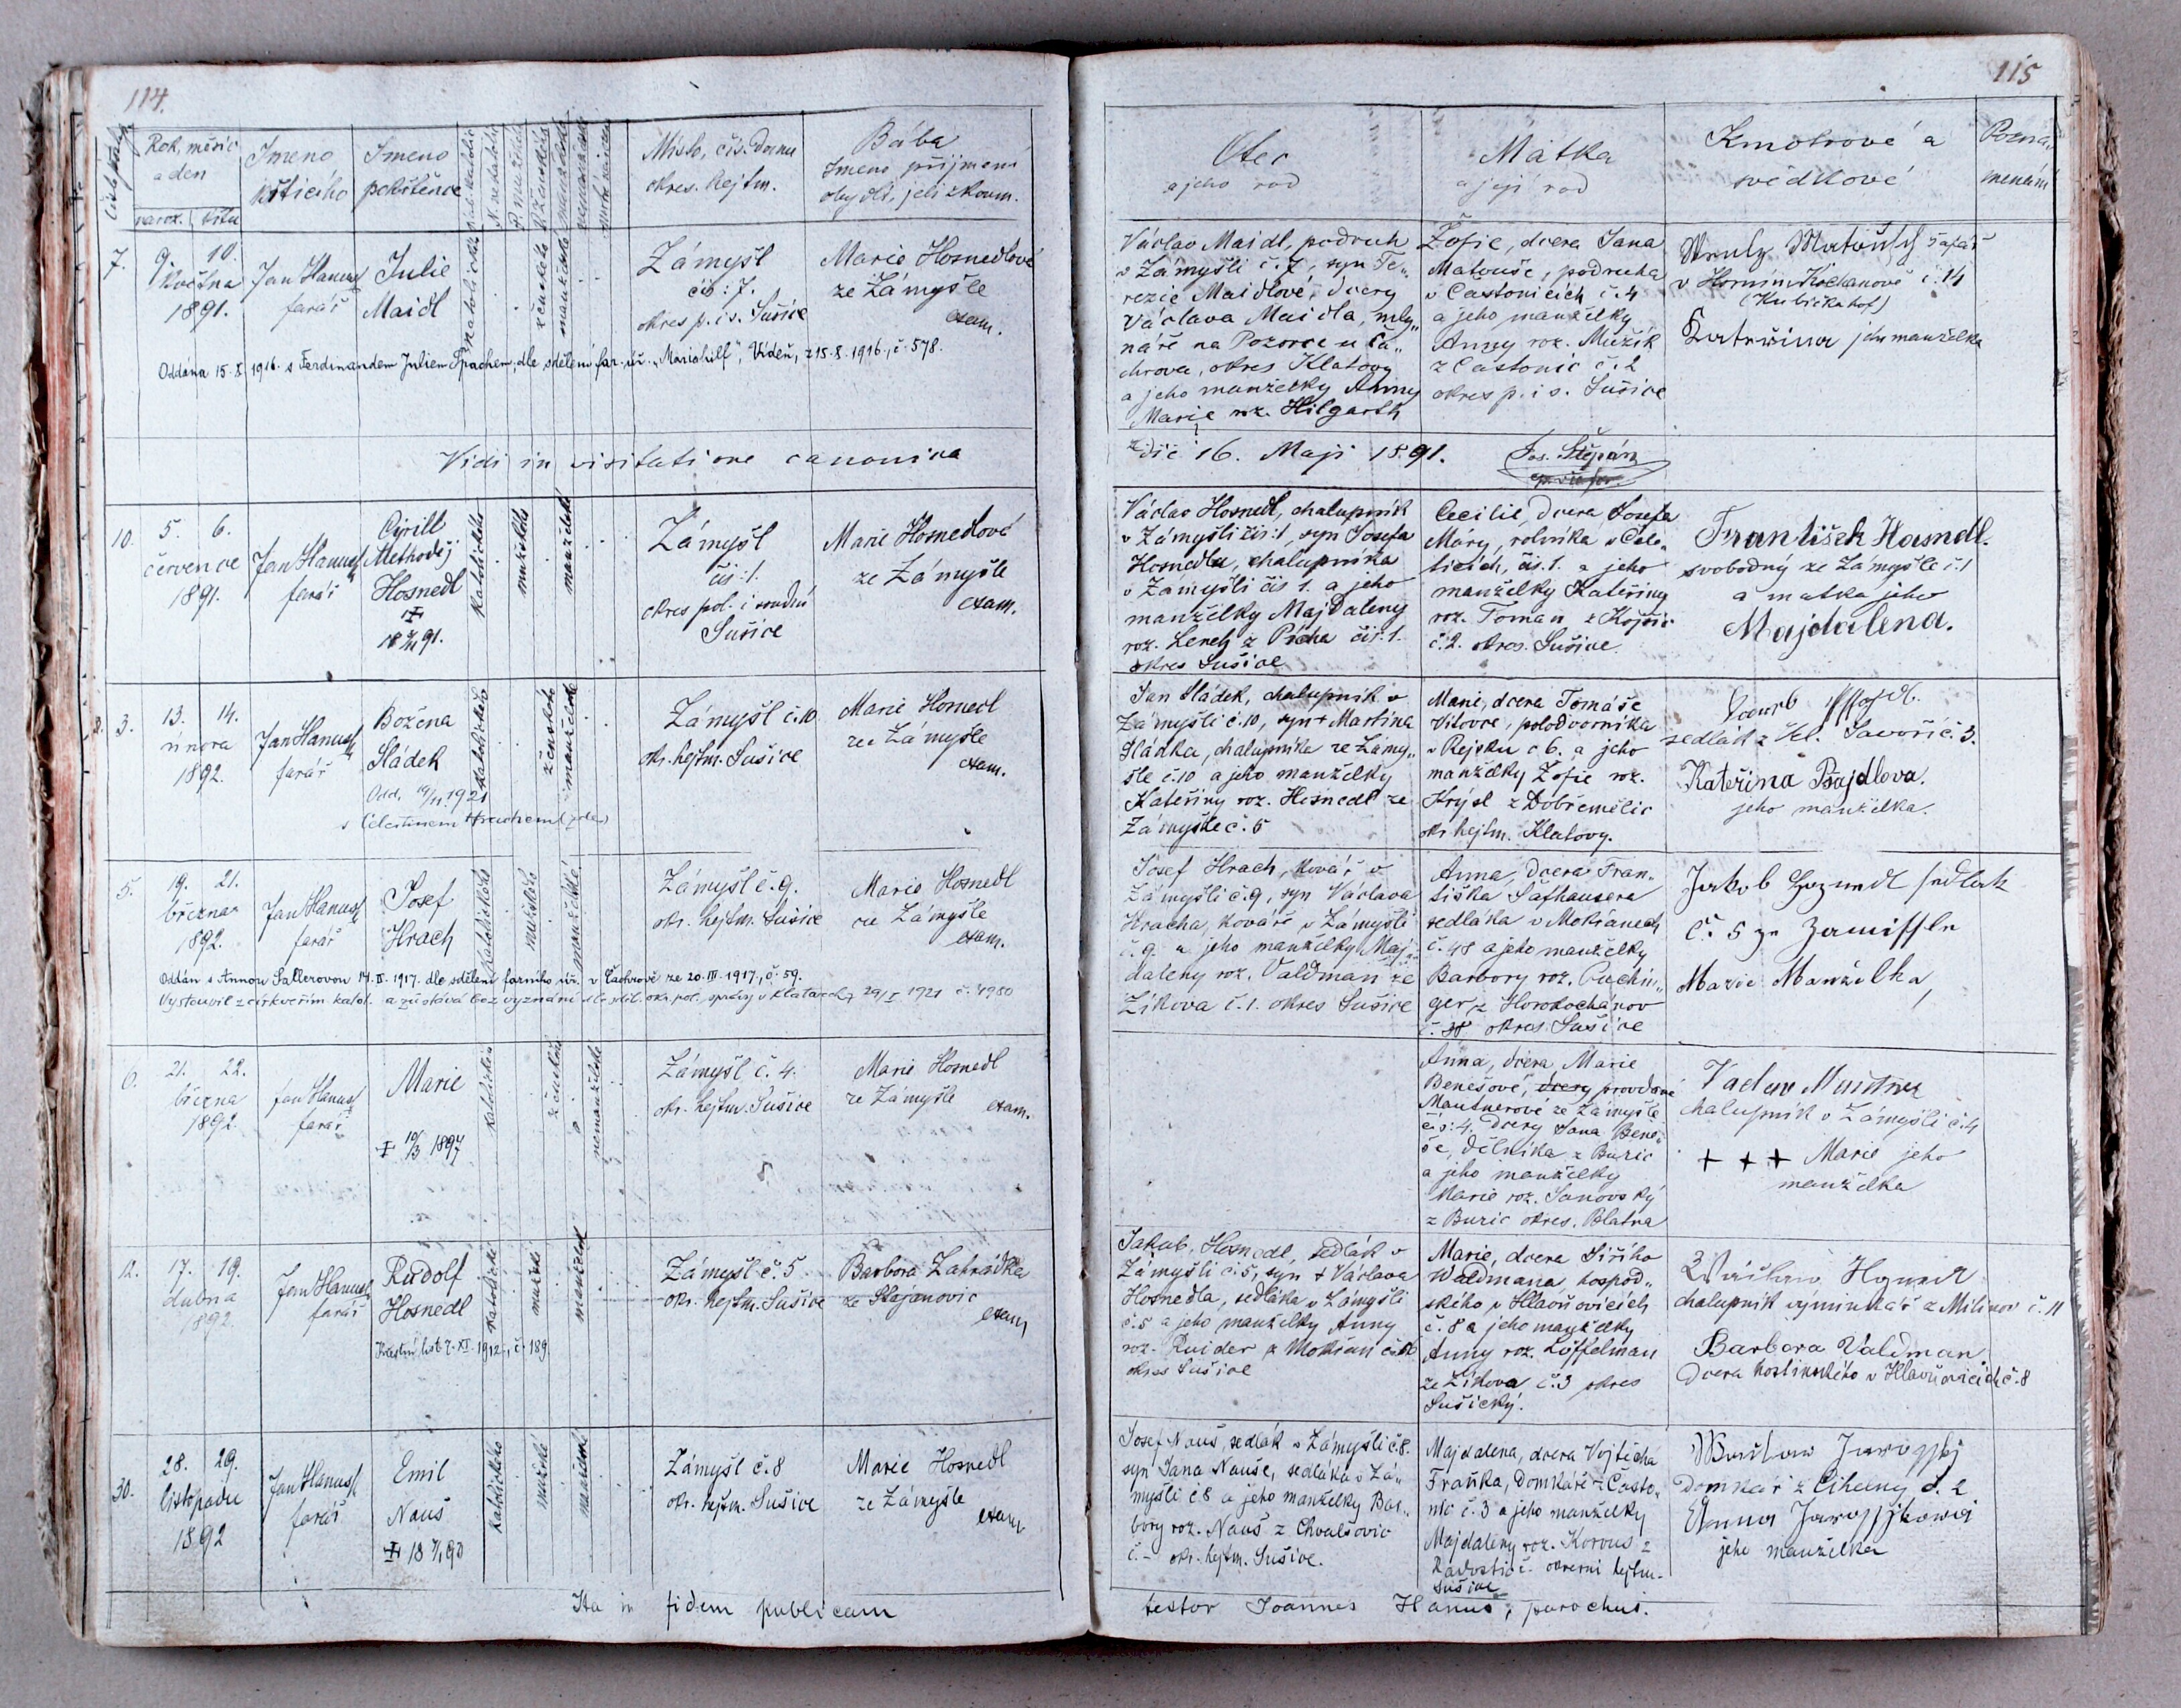 114.
Rok, měsíc
a den
naroz. křtu
Jméno
křtícího
Jméno
pokřtěnce
Místo, čís. domu
okres. hejtm.
Bába
Jméno příjmení
obydlí, jeli zkoum.
7.
9. 10.
května
1891.
Jan Hanuš
farář
Julie
Maidl
katolické
ženské
manželské
Zámyšl
čís: 7.
okres p. i s. Sušice
Marie Hosnedlová
ze Zámyšle
exam.
Oddána 15.8. 1916. s Ferdinandem Juliem Spachem, dle sdělení far. úř. „Mariahilf", Vídeň, z 15.8.1916., č. 578.
Vidi in visitatione canonica
10.
5. 6.
července
1891.
Jan Hanuš
farář
Cyrill
Methoděj
Hosnedl
91.
katolického
mužského
manželské
Zámyšl
čís: 1.
okres pol. i soudní
Sušice
Marie Hosnedlová
ze Zámyšle
exam.
3.
13. 14.
února
1892.
Jan Hanuš
farář
Božena
Sládek
Odd. 1921
s Celestinem Hrachem
katolického
ženského
manželské
Zámyšl č. 10
okr. hejtm. Sušice
Marie Hosnedl
ze Zámyšle
exam.
5.
19. 21.
března
1892.
Jan Hanuš
farář
Josef
Hrach
katolického
mužského
manželské
Zámyšl č. 9.
okr. hejtm. Sušice
Marie Hosnedl
ze Zámyšle
exam.
Oddán s Annou Sattlerovou 14.II. 1917. dle sdělení farního úř. v Čachrově ze 20.III.1917., č. 59.
Vystoupil z církve řím. katol. a zůstává bez vyznání dle sděl. okr. pol. správy v Klatovech 29/I 1921 č. 4980
6.
21. 22.
března
1892.
Jan Hanuš
farář
Marie
10/3 1897
katolického
ženské
nemanželské
Zámyšl č. 4.
okr. hejtm. Sušice
Marie Hosnedl
ze Zámyšle
exam.
12.
17. 19.
dubna
1892.
Jan Hanuš
farář
Rudolf
Hosnedl
Křestní list 7. XI. 1912., č. 189
katolické
mužské
manželské
Zámyšl č. 5
okr. hejtm. Sušice
Barbora Zahrádka
ze Stajanovic
exam
30.
28. 29.
listopadu
1892
Jan Hanuš
farář
Emil
Nauš
katolického
mužské
manželské
Zámyšl č. 8
okr. hejtm. Sušice
Marie Hosnedl
ze Zámyšle
exam
Ita in fidem publicam
115
Otec
a jeho rod
Matka
a její rod
Kmotrové a
svědkové
Pozna-
menání
Václav Maidl, podruh
v Zámyšli č. 7, syn Te„
rezie Maidlové, dcery
Václava Maidla, mly„
náře na Pozorce u Ča„
chrova, okres Klatovy
a jeho manželky Anny
Marie roz. Hilgarth
Žofie, dcera Jana
Matouše, podruha
v Častonicích č. 4
a jeho manželky
Anny roz. Mužík
z Častonic č. 2
okres p. i s. Sušice
Matoušch šafář
v Horním Kochanově č. 14
(Kubrickahof)
Kateřina jeho manželka
die 16. Maji 1891. Jos. Štěpán
Václav Hosnedl, chalupník
v Zámyšli čís: 1, syn Josefa
Hosnedla, chalupníka
v Zámyšli čís 1. a jeho
manželky Majdaleny
roz. Lerch z Pícha čís. 1.
okres Sušice
Cecilie, dcera Josefa
Mary, rolníka v Čele„
ticích, čís. 1. a jeho
manželky Kateřiny
roz. Toman z Kojšic
č. 2. okres. Sušice
František Hosnedl.
svobodný ze Zámyšle č. 1
a matka jeho
Majdalena.
Jan Sládek, chalupník v
Zámyšli č. 10, syn + Martina
Sládka, chalupníka ze Zámy„
šle č. 10 a jeho manželky
Kateřiny roz. Hosnedl ze
Zámyšle č. 5
Marie, dcera Tomáše
Vitovce, polodvorníka
v Rejsku č 6. a jeho
manželky Žofie roz.
Krýsl z Dobřemělic
okr. hejtm. Klatovy.
sedlák z Javoří č. 3.
Kateřina Pšajdlova.
jeho manželka.
Josef Hrach, kovář v
Zámyšli č. 9, syn Václava
Hracha, kováře v Zámyšli
č. 9. a jeho manželky Maj„
daleny roz. Valdman ze
Zíkova č. 1. okres Sušice
Anna, dcera Fran„
tiška Šafhausera
sedláka v Mokřanech
č. 48 a jeho manželky
Barbory roz. Puchin„
ger z Horokochánov
č. 38 okres Sušice
Jakob Hoznedl sedlak
č. 5 ze Zamissle
Marie Manželka,
Anna, dcera Marie
Benešové, dcery provdané
Mautnerové ze Zámyšle
čís: 4. dcery Jana Bene„
še, dělníka z Buzic
a jeho manželky
Marie roz. Janovský
z Buzic okres. Blatna
chalupník v Zámyšli č. 4
+ + + Marie jeho
manželka
Jakub Hosnedl, sedlák v
Zámyšli č. 5, syn + Václava
Hosnedla, sedláka v Zámyšli
č. 5 a jeho manželky Anny
okres Sušice
Marie, dcera Jiřího
Waldmana hospod„
ského v Hlavňovicích
č. 8 a jeho manželky
Anny roz. Löffelman
ze Zíkova č. 3 okres
Sušický.
chalupník výminkář z Milínov č. 11
Barbora Valdman
Dcera hostinského v Hlavňovicích č. 8
Josef Nauš, sedlák v Zámyšli č. 8.
syn Jana Nauše, sedláka v Zá„
myšli č 8 a jeho manželky Bar„
bory roz. Nauš z Chvalšovic
č. - okr. hejtm. Sušice.
Majdalena, dcera Vojtěcha
Fraňka, domkáře z Často„
nic č. 3 a jeho manželky
Majdaleny roz. Korous z
Radostic č. okresní hejtm.
Sušice
domkář z Cihelny č. 2
Anna
jeho manželka
testor Joannes Hanuš, parochus.